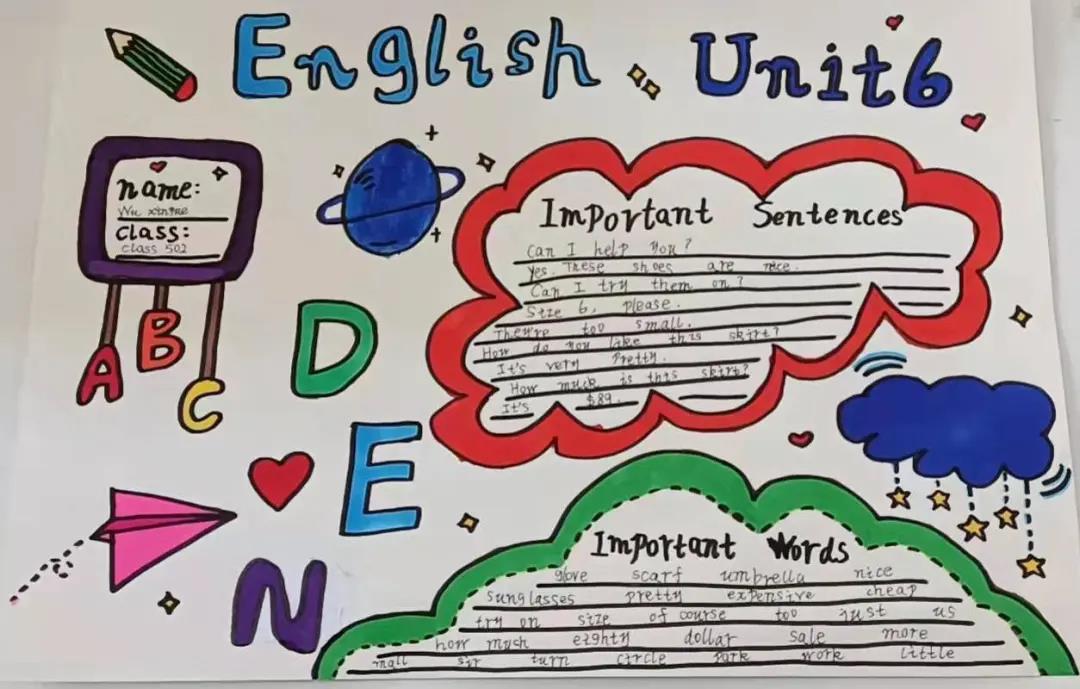 English Unit 6
name:
Wu xin
class:
class 502
A
B
C
D
E
N
Important Sentences
Can I help you?
Yes. These shoes are nice.
Can I try them on?
Size 6, please.
They're too small.
How do you like this skirt?
It's very pretty.
How much is this skirt?
It's $89.
Important Words
glove scarf umbrella nice
sunglasses pretty expensive cheap
try on size of course too just us
how much eighty dollar sale more
mall sir turn circle park work little